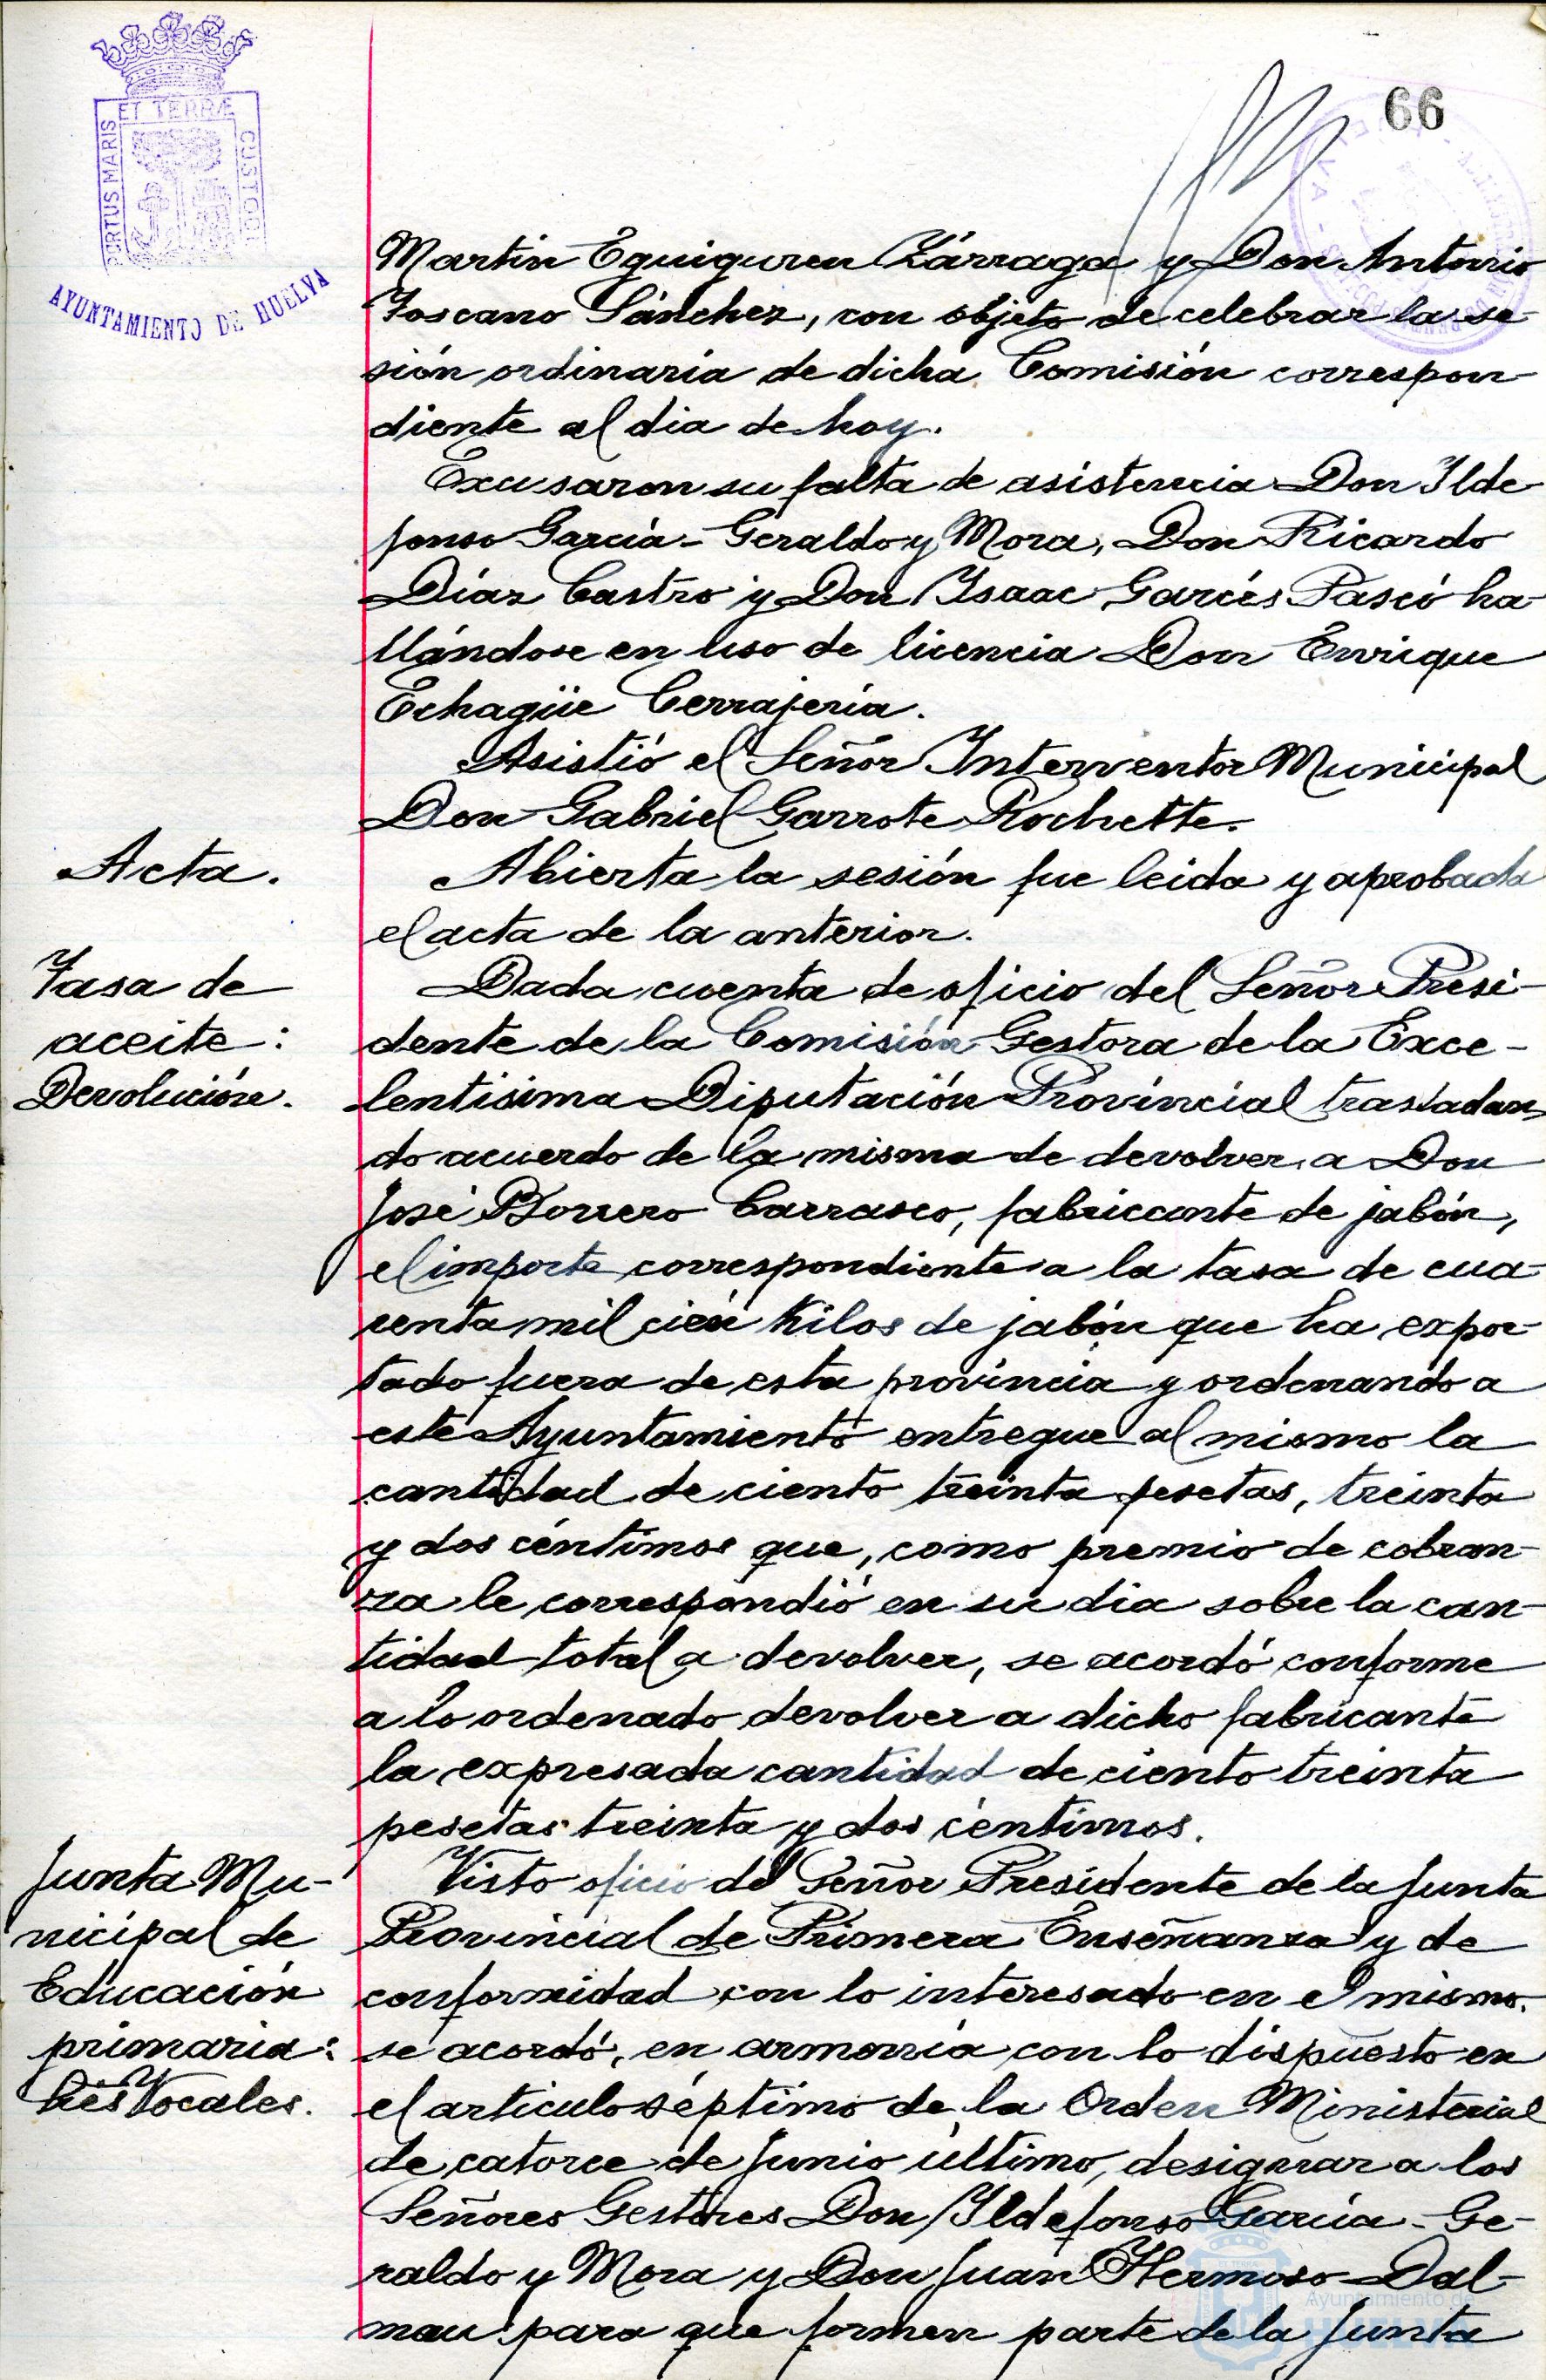 66
ET TERRÆ
PORTUS MARIS
CUSTODI
AYUNTAMIENTO DE HUELVA
Martin Eguiguren Zárraga y Don Antonio
Toscano Sánchez, con objeto de celebrar la se-
sión ordinaria de dicha Comisión correspon-
diente al dia de hoy.
Excusaron su falta de asistencia Don Ilde
fonso García-Geraldo y Mora, Don Ricardo
Díaz Castro y Don Isaac Garcés Pascó ha-
llándose en uso de licencia Don Enrique
Echagüe Cerrajería.
Asistió el Señor Interventor Municipal
Don Gabriel Garrote Rochette.
Acta.
Abierta la sesión fue leida y aprobada
el acta de la anterior.
Tasa de
aceite:
Devolución.
Dada cuenta de oficio del Señor Presi-
dente de la Comisión Gestora de la Exce-
lentisima Diputación Provincial trasladan-
do acuerdo de la misma de devolver a Don
José Borrero Carrasco, fabricante de jabón,
el importe correspondiente a la tasa de cua-
renta mil cien Kilos de jabón que ha expor-
tado fuera de esta provincia y ordenando a
este Ayuntamiento entregue al mismo la
cantidad de ciento treinta pesetas, treinta
y dos céntimos que, como premio de cobran-
za le correspondió en su dia sobre la can-
tidad total a devolver, se acordó conforme
a lo ordenado devolver a dicho fabricante
la expresada cantidad de ciento treinta
pesetas treinta y dos céntimos.
Junta Mu-
nicipal de
Educación
primaria:
tres Vocales.
Visto oficio del Señor Presidente de la Junta
Provincial de Primera Enseñanza y de
conformidad con lo interesado en el mismo.
se acordó, en armonía con lo dispuesto en
el articulo séptimo de la Orden Ministerial
de catorce de Junio último, designar a los
Señores Gestores Don Ildefonso García-Ge-
raldo y Mora y Don Juan Hermoso Dal-
mau para que formen parte de la Junta
Ayuntamiento de
HUELVA